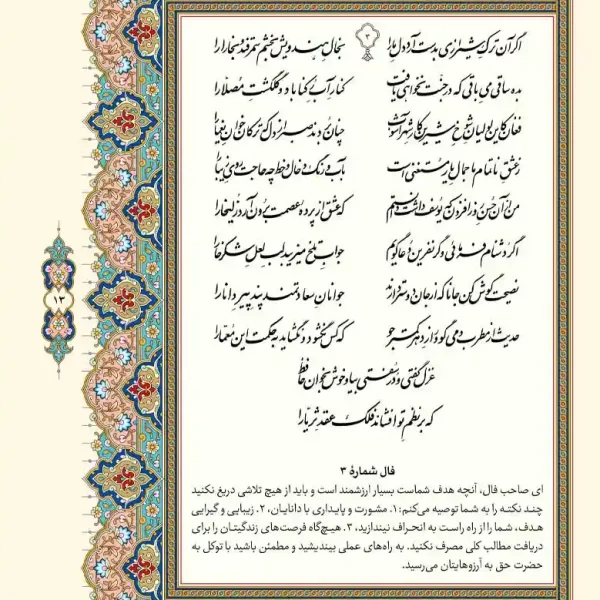 ۳
اگر آن ترک شیرازی بدست آرد دل ما را
بخال هندویش بخشم سمرقند و بخارا را
بده ساقی می باقی که در جنت نخواهی یافت
کنار آب رکناباد و گلگشت مصلا را
فغان کاین لولیان شوخ شیرین کار شهرآشوب
چنان بردند صبر از دل که ترکان خوان یغما را
ز عشق ناتمام ما جمال یار مستغنی است
بآب و رنگ و خال و خط چه حاجت روی زیبا را
من از آن حسن روزافزون که یوسف داشت دانستم
که عشق از پرده عصمت برون آرد زلیخا را
اگر دشنام فرمائی و گر نفرین دعا گویم
جواب تلخ میزیبد لب لعل شکرخا را
نصیحت گوش کن جانا که از جان دوستتر دارند
جوانان سعادتمند پند پیر دانا را
حدیث از مطرب و می گو و راز دهر کمتر جو
که کس نگشود و نگشاید به حکمت این معما را
غزل گفتی و در سفتی بیا و خوش بخوان حافظ
که بر نظم تو افشاند فلک عقد ثریا را
فال شمارهٔ ۳
ای صاحب فال، آنچه هدف شماست بسیار ارزشمند است و باید از هیچ تلاشی دریغ نکنید
چند نکته را به شما توصیه می‌کنم: ۱. مشورت و پایداری با دانایان، ۲. زیبایی و گیرایی
هدف، شما را از راه راست به انحراف نیندازید، ۳. هیچ‌گاه فرصت‌های زندگیتان را برای
دریافت مطالب کلی مصرف نکنید. به راه‌های عملی بیندیشید و مطمئن باشید با توکل به
حضرت حق به آرزوهایتان می‌رسید.
۱۳